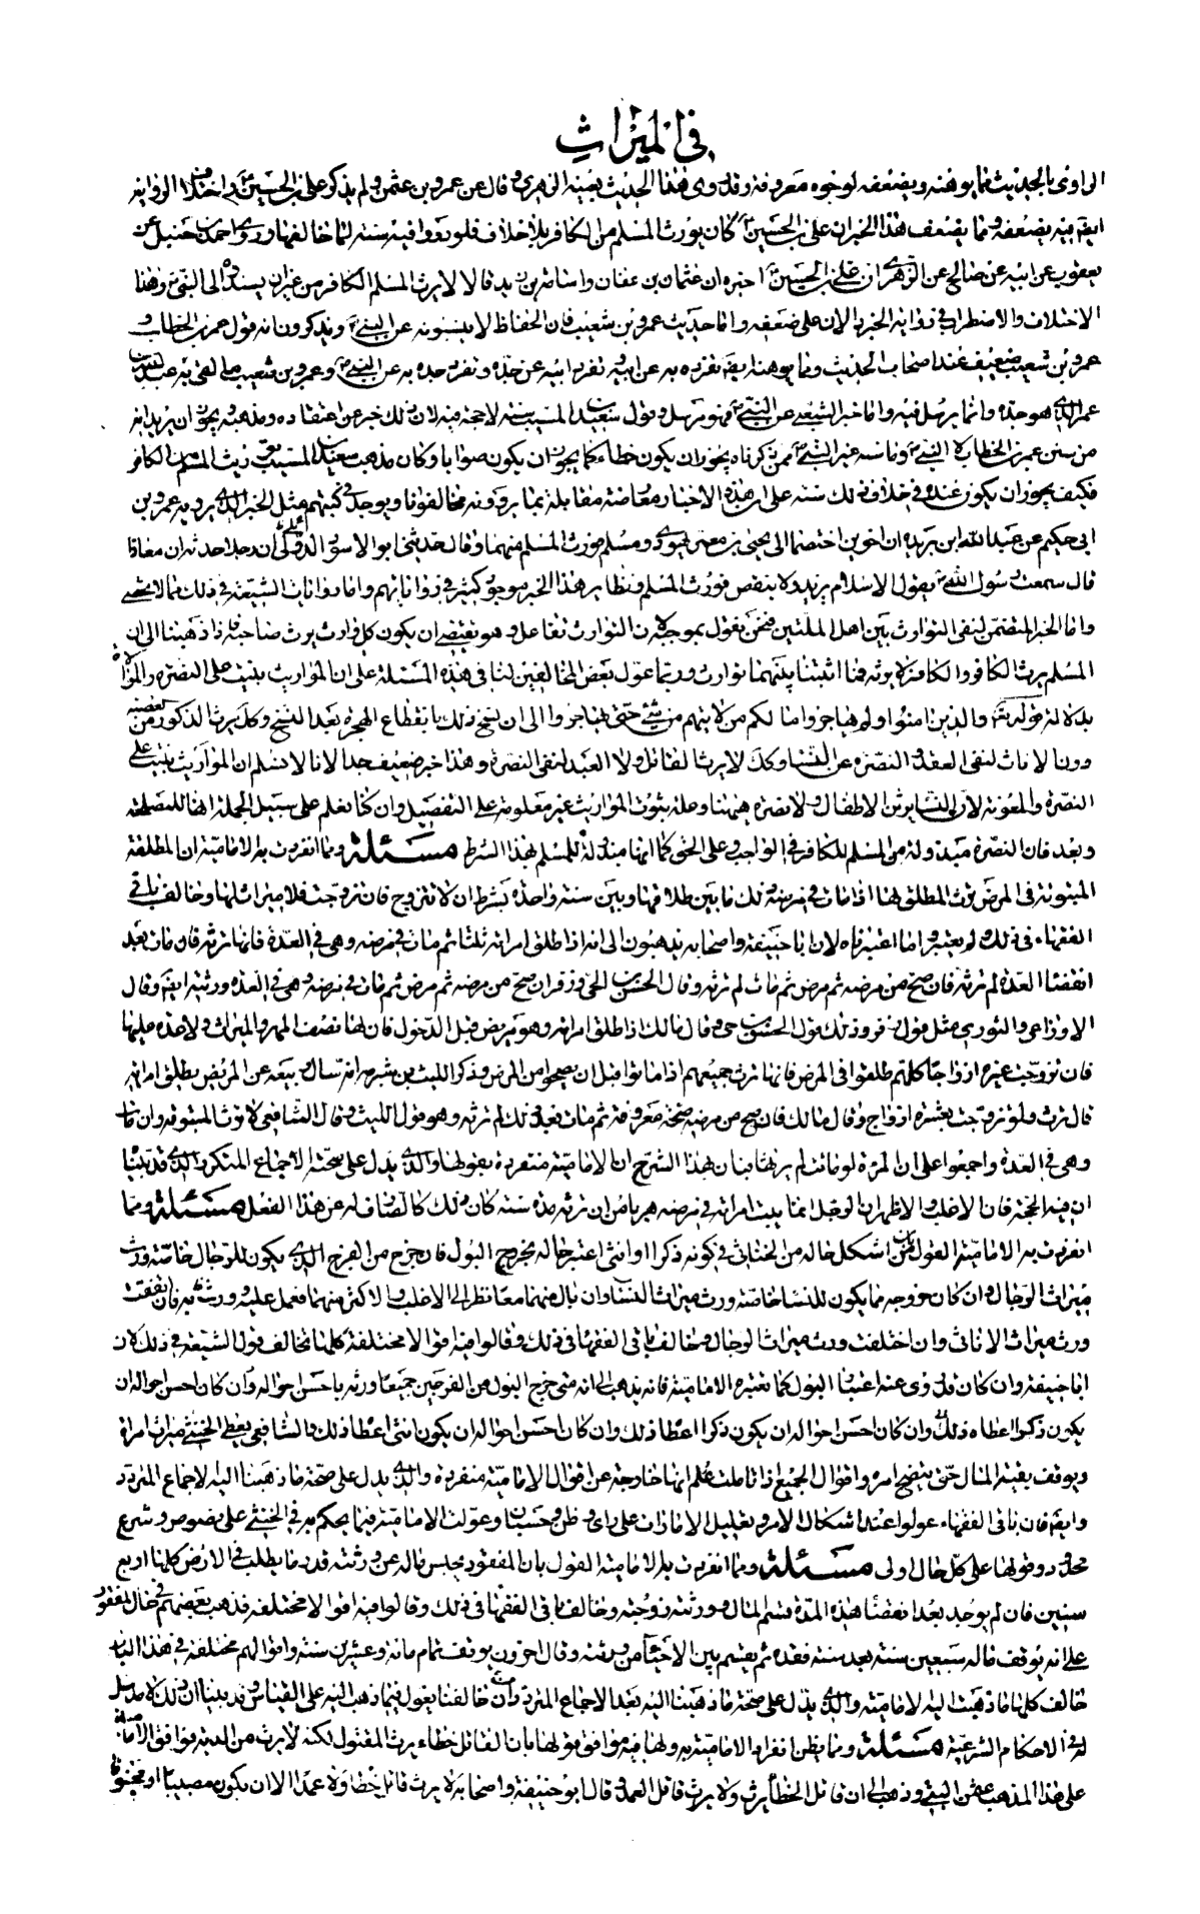 في الميراث
الراوي بالحديث مما يوهنه ويضعفه لوجوه معروفة وقد روى هذا الحديث بعينه الزهري وقال عن عمرو بن عثمن ولم يذكر علي بن الحسين ع واختلاف الرواية
ايضا فيه يضعفه ومما يضعف هذا الخبر ان علي بن الحسين ع كان يورث المسلم من الكافر بلا خلاف فلو روا فيه سنة لما خالفها وروى احمد بن حنبل عن
يعقوب عن ابيه عن صالح عن الزهري ان علي بن الحسين ع اخبره ان عثمان بن عفان واسامة بن زيد قالا لا يرث المسلم الكافر من غير ان يسنداه الى النبي ص وهذا
الاختلاف والاضطراب في رواية الخبر دالان على ضعفه واما حديث عمرو بن شعيب فان الحفاظ لا يثبتونه عن النبي ص ويذكرون انه قول عمر بن الخطاب و
عمرو بن شعيب ضعيف عند اصحاب الحديث ومما يوهنه ايضا تفرده به عن ابيه وتفرد ابيه عن جده وتفرد جده به عن النبي ص وعمرو بن شعيب ما لقى به عبد الله بن
عمر الذي هو جده وانما يرسل فيه واما خبر الشعبي عن النبي ص فهو مرسل وقول سعيد بن المسيب سنة لا حجة فيه لان ذلك خبر عن اعتقاده ومذهبه يجوز ان يريد انه
من سنن عمر بن الخطاب لا النبي ص وما سنه غير النبي ص ممن ذكرناه يجوز ان يكون خطاء كما يجوز ان يكون صوابا وكان مذهب سعيد بن المسيب توريث المسلم من الكافر
فكيف يجوز ان يكون عنده في خلاف ذلك سنة على ان هذه الاخبار معارضة مقابلة بما يروونه مخالفونا ويوجد في كتبهم مثل الخبر الذي يرويه عمرو بن
ابي حكيم عن عبد الله ابن بريده ان اخوين اختصما الى يحيى بن معمر يهودي ومسلم فورث المسلم منهما وقال حدثني ابو الاسود الدؤلي ان رجلا حدثه ان معاذا
قال سمعت رسول الله ص يقول الاسلام يزيد ولا ينقص فورث المسلم ونظاير هذا الخبر موجود كثير في رواياتهم واما روايات الشيعة في ذلك فما لا يحصى
واما الخبر المتضمن لنفى التوارث بين اهل الملتين فنحن نقول بموجبه لان التوارث تفاعل وهو يقتضي ان يكون كل وارث يرث صاحبه فاذا ذهبنا الى ان
المسلم يرث الكافر والكافر لا يرثه فما اثبتنا بينهما توارث وربما عول بعض المخالفين لنا في هذه المسئلة على ان المواريث بنيت على النصرة والموالاة
بدلالة قوله تع والذين امنوا ولم يهاجروا ما لكم من ولايتهم من شئ حتى يهاجروا الى ان نسخ ذلك بانقطاع الهجرة بعد الفتح وكل يرث الذكور من العصبة
دون الاناث لنفى العقل والنصرة عن النساء وكك لا يرث القاتل ولا العبد لنفى النصرة وهذا خبر ضعيف جدا لانا لا نسلم ان المواريث بنيت على
النصرة والمعونة لان النساء يرثن الاطفال ولا نصرة هيهنا وعلة ثبوت المواريث غير معلومة على التفصيل وان كنا نعلم على سبيل الجملة انها للمصلحة
وبعد فان النصرة مبذولة من المسلم للكافر في الواجب وعلى الحق كما انها مبذولة للمسلم بهذا الشرط مسئلة ومما انفردت به الامامية ان المطلقة
المبتوتة في المرض يرث المطلق لها اذا مات في مرضه ذلك ما بين طلاقها وبين سنة واحدة بشرط ان لا تتزوج فان تزوجت فلا ميراث لها وخالف باقي
الفقهاء في ذلك ولم يعتبروا ما اعتبرناه لان ابا حنيفة واصحابه يذهبون الى انه اذا طلق امراته ثلثا ثم مات في مرضه وهي في العدة فانها ترثه فان مات بعد
انقضاء العدة لم ترثه فان صح من مرضه ثم مرض ثم مات لم ترثه وقال الحسن بن الحي وزفر ان صح من مرضه ثم مرض ثم مات في مرضه وهي في العدة ورثته ايضا وقال
الاوزاعي والثوري مثل قول زفر وذلك قول الحسن بن حي وقال مالك اذا طلق امراته وهو مريض قبل الدخول فان لها نصف المهر والميراث ولا عدة عليها
فان تزوجت عشرة ازواجا كلهم طلقوا في المرض فانها ترث جميعهم اذا ماتوا قبل ان يصحوا من المرض وذكر الليث بن سعد انه سال ربيعة عن المريض يطلق امراته
قال ترث ولو تزوجت بعشرة ازواج وقال مالك فان صح من مرضه صحة معروفة ثم مات بعد ذلك لم ترثه وهو قول الليث وقال الشافعي لا ترث المبتوتة وان مات
وهي في العدة واجمعوا على ان المرءة لو ماتت لم يرثها فبان بهذا الشرح ان الامامية منفردة بقولها والذي يدل على صحته الاجماع المتكرر والذي قد بينا
ان فيه الحجة فان الاغلب والاظهر ان الرجل انما يبت امراته في مرضه هربا من ان ترثه مدة سنة كان ذلك كالصارف له عن هذا الفعل مسئلة ومما
انفردت به الامامية القول بان من اشكل حاله من الخناثى في كونه ذكرا او انثى اعتبر حاله بخروج البول فان خرج من الفرج الذي يكون للرجال خاصة ورث
ميراث الرجال وان كان خروجه مما يكون للنساء خاصة ورث ميراث النساء وان بال منهما معا نظر الى الاغلب والاكثر منهما فعمل عليه وورث به فان اتفقت
ورث ميراث الاناث وان اختلفت ورث ميراث الرجال وخالف باقي الفقهاء في ذلك وقالوا فيه اقوالا مختلفة كلها تخالف قول الشيعة في ذلك لان
ابا حنيفة وان كان قد روى عنه اعتبار البول كما نعتبره الامامية فانه يذهب الى انه متى خرج البول من الفرجين جميعا ورثه باحسن احواله وان كان احسن احواله ان
يكون ذكرا اعطاه ذلك وان كان احسن احواله ان يكون ذكرا اعطاه ذلك وان كان احسن احواله ان يكون انثى اعطاه ذلك والشافعي يعطى الخنثى ميراث امراة
ويوقف بقية المال حتى يتضح امره واقوال الجميع اذا تاملت علم انها خارجة عن اقوال الامامية منفردة والذي يدل على صحة ما ذهبنا اليه الاجماع المتردد
وايضا فان باقي الفقهاء عولوا عند اشكال الامر وتقليل الامارات على راى وظن وحسبان وعولت الامامية فيما يحكم به في الخنثى على نصوص وشرع
محدود وقولها على كل حال اولى مسئلة ومما انفردت به الامامية القول بان المفقود يحبس ماله عن ورثته قدر ما يطلب في الارض كلها اربع
سنين فان لم يوجد بعد انقضاء هذه المدة قسم المال بين ورثته وزوجته وخالف باقي الفقهاء في ذلك وقالوا فيه اقوالا مختلفة فذهب بعضهم في حال المفقود
على انه يوقف ماله سبعين سنة بعد سنة فقده ثم يقسم بين الاحياء من ورثته وقال اخرون يوقف تمام مائة وعشرين سنة واقوالهم مختلفة في هذا الباب
خالف كلها ما ذهبت اليه الامامية والذي يدل على صحة ما ذهبنا اليه بعد الاجماع المتردد ان من خالفنا يقول فيما ذهب اليه على القياس وقد بينا ان ذلك لا مدخل
له في الاحكام الشرعية مسئلة ومما يظن انفراد الامامية به ولها فيه موافق قولها بان القاتل خطاء يرث المقتول لكنه لا يرث من الدية فوافق الامامية
على هذا المذهب عثمن البتي وذهب الى ان قاتل الخطأ يرث ولا يرث قاتل العمد وقال ابو حنيفة واصحابه لا يرث قاتل خطاء ولا عمدا الا ان يكون صبيا او مجنونا